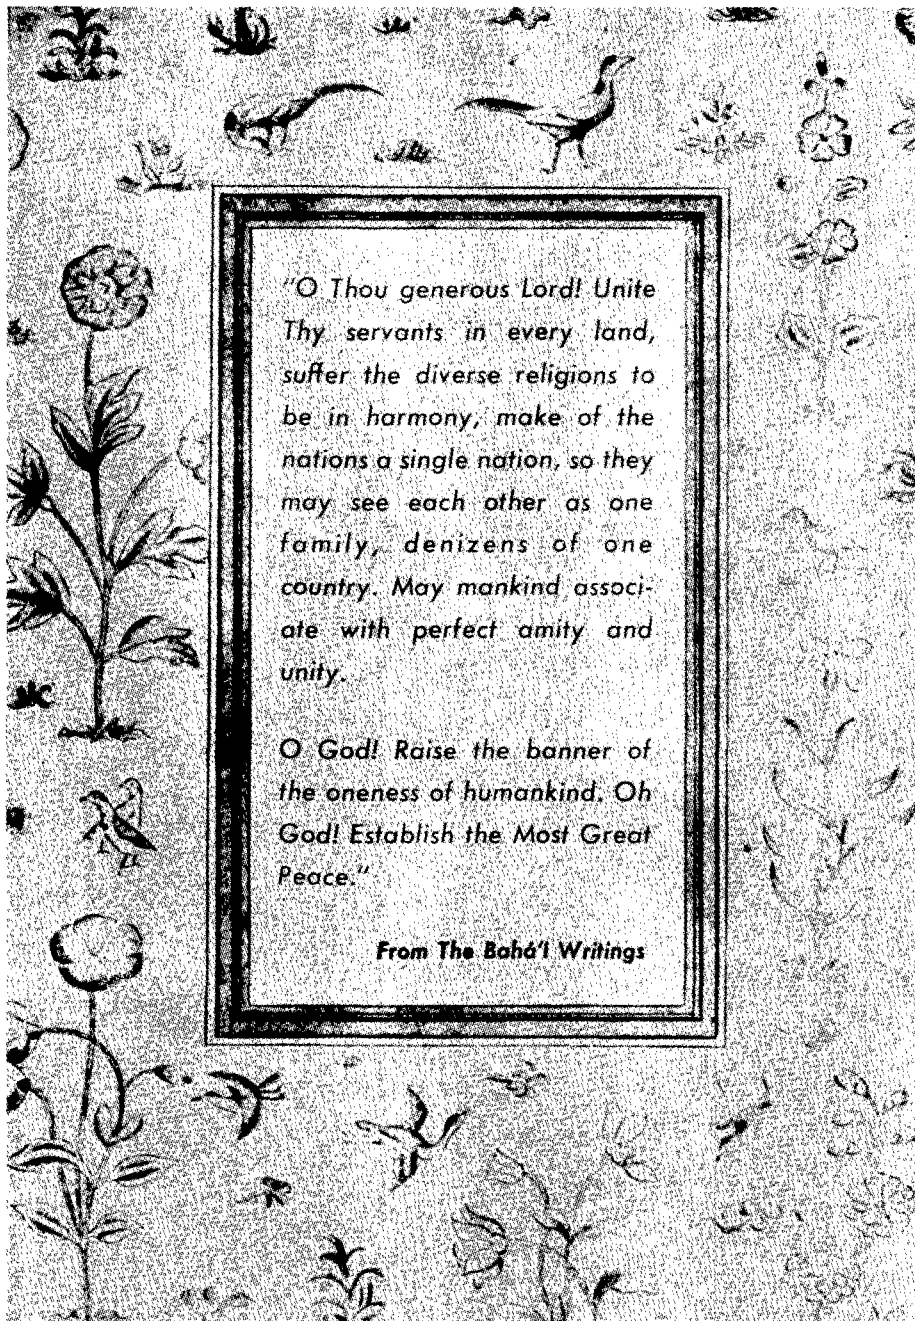 "O Thou generous Lord! Unite
Thy servants in every land,
suffer the diverse religions to
be in harmony, make of the
nations a single nation, so they
may see each other as one
family, denizens of one
country. May mankind associ-
ate with perfect amity and
unity.
O God! Raise the banner of
the oneness of humankind. Oh
God! Establish the Most Great
Peace."
From The Bahá'í Writings